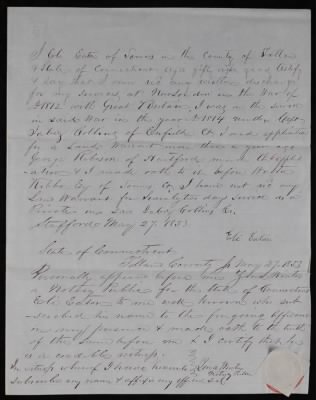 I Eli Eaton of Somers in the county of Tolland
& State of Connecticut aged fifty nine years Certify
& say that I never rec'd any written discharge
for my services, at New London in the War of
1812 with Great Britain, I was in the service
in said War in the year 1814 under Capt
Jabez Collins of Enfield Ct I made application
for a Land Warrant more than a year ago
George Robinson of Hartford made the applic
ation & I made oath to it before
Esq of Somers Ct I have not rec'd my
Land Warrant for Seventy two days service as a
Private in Said Jabez Collins Co.
Stafford May 27. 1853
Eli Eaton
State of Connecticut
Tolland County Ss May 27. 1853
Personally appeared before me
a Notary Public for the State of Connecticut
Eli Eaton to me well known who sub-
scribed his name to the foregoing affidavit
in my presence & made oath to the truth
of the same before me & I certify that he
is a credible
In witness whereof I have hereunto
Subscribe my name & affix my official Seal
Notary Public